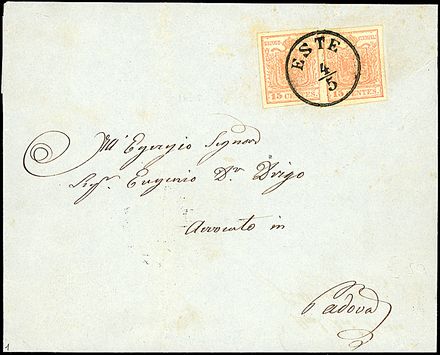 ESTE
4/5
15 CENTES. 15 CENTES.
All' Egregio Signor
Sigr. Eugenio Dr. Drigo
Avvocato in
Padova
1